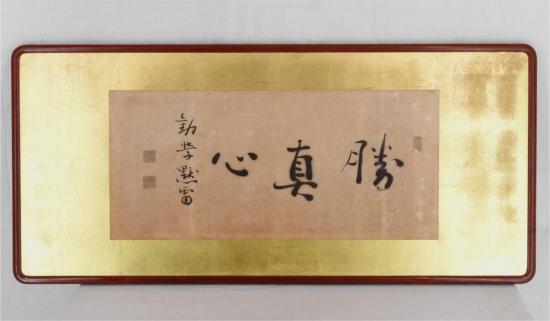 勝真心
勧学黙雷